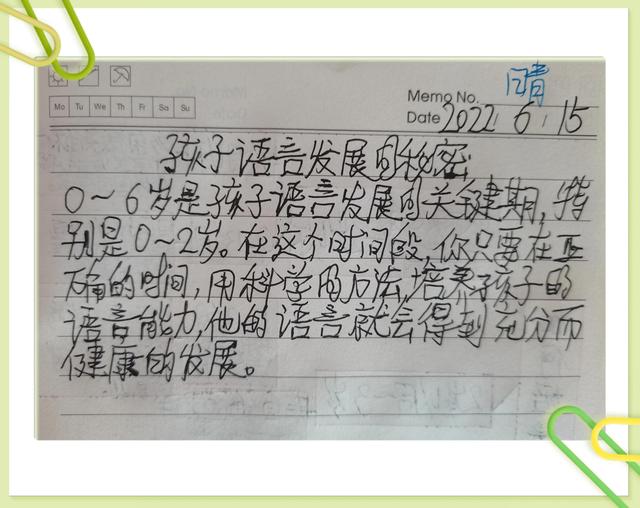 晴
Memo No.
Mo Tu We Th Fr Sa Su
Date 2022. 6. 15
孩子语言发展的秘密
0~6岁是孩子语言发展的关键期,特
别是0~2岁。在这个时间段,你只要在正
确的时间,用科学的方法,培养孩子的
语言能力,他的语言就会得到充分而
健康的发展。